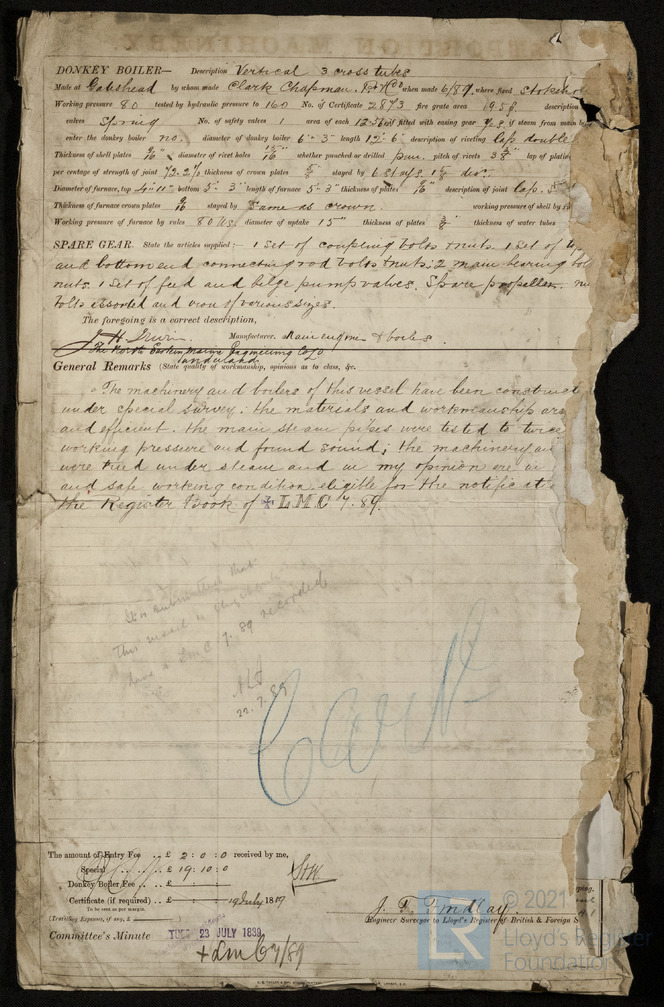 DONKEY BOILER— Description Vertical 3 cross tubes
Made at Gateshead by whom made Clark Chapman, P & Co when made 6/89. where fixed stokehol
Working pressure 80 tested by hydraulic pressure to 160 No. of Certificate 2873 fire grate area 19.5 description
valves Spring No. of safety valves 1 area of each if fitted with casing gear yes if steam from main b
enter the donkey boiler no. diameter of donkey boiler 6'-3" length 12'-6" description of riveting lap double
Thickness of shell plates 9/16" diameter of rivet holes 15/16" whether punched or drilled pun. pitch of rivets lap of plating
per centage of strength of joint 72.2% thickness of crown plates stayed by 6 stays
Diameter of furnace, top 4'-11" bottom 5'-3" length of furnace 5'-3" thickness of plates description of joint lap.
Thickness of furnace crown plates 9/16 stayed by Same as crown. working pressure of shell by
Working pressure of furnace by rules 80 lbs. diameter of uptake 15" thickness of plates 3/8" thickness of water tubes
SPARE GEAR. State the articles supplied:— 1 set of coupling bolts & nuts. 1 set of top
and bottom end connecting rod bolts & nuts; 2 main bearing bol
nuts. 1 set of feed and bilge pump valves. Spare propeller.
bolts assorted and iron of various sizes.
The foregoing is a correct description,
J. H. Irwin Manufacturer. Main engine & boilers.
The North Eastern Marine Engineering Co Ld
Sunderland
General Remarks (State quality of workmanship, opinions as to class, &c.
The machinery and boilers of this vessel have been construct
under special survey; the materials and workmanship are
and efficient. the main steam pipes were tested to twice
working pressure and found sound; the machinery an
were tried under steam and in my opinion are in
and safe working condition eligible for the notificat
the Register Book of ✠ LMC 7.89.
It is submitted that
this vessel is eligible to
have + LMC 7.89 recorded
22.7.89
The amount of Entry Fee .. £ 2 : 0 : 0 received by me,
Special .. .. £ 19 : 10 : 0
Donkey Boiler Fee .. £ : :
Certificate (if required) .. £ : : 19 July 1889
To be sent as per margin.
(Travelling Expenses, if any, £ )
J. T. Findlay.
Engineer Surveyor to Lloyd's Register of British & Foreign S
Committee's Minute TUES 23 JULY 1889
+ Lmc 7/89
© 2021
Lloyd's Register
Foundation
LR